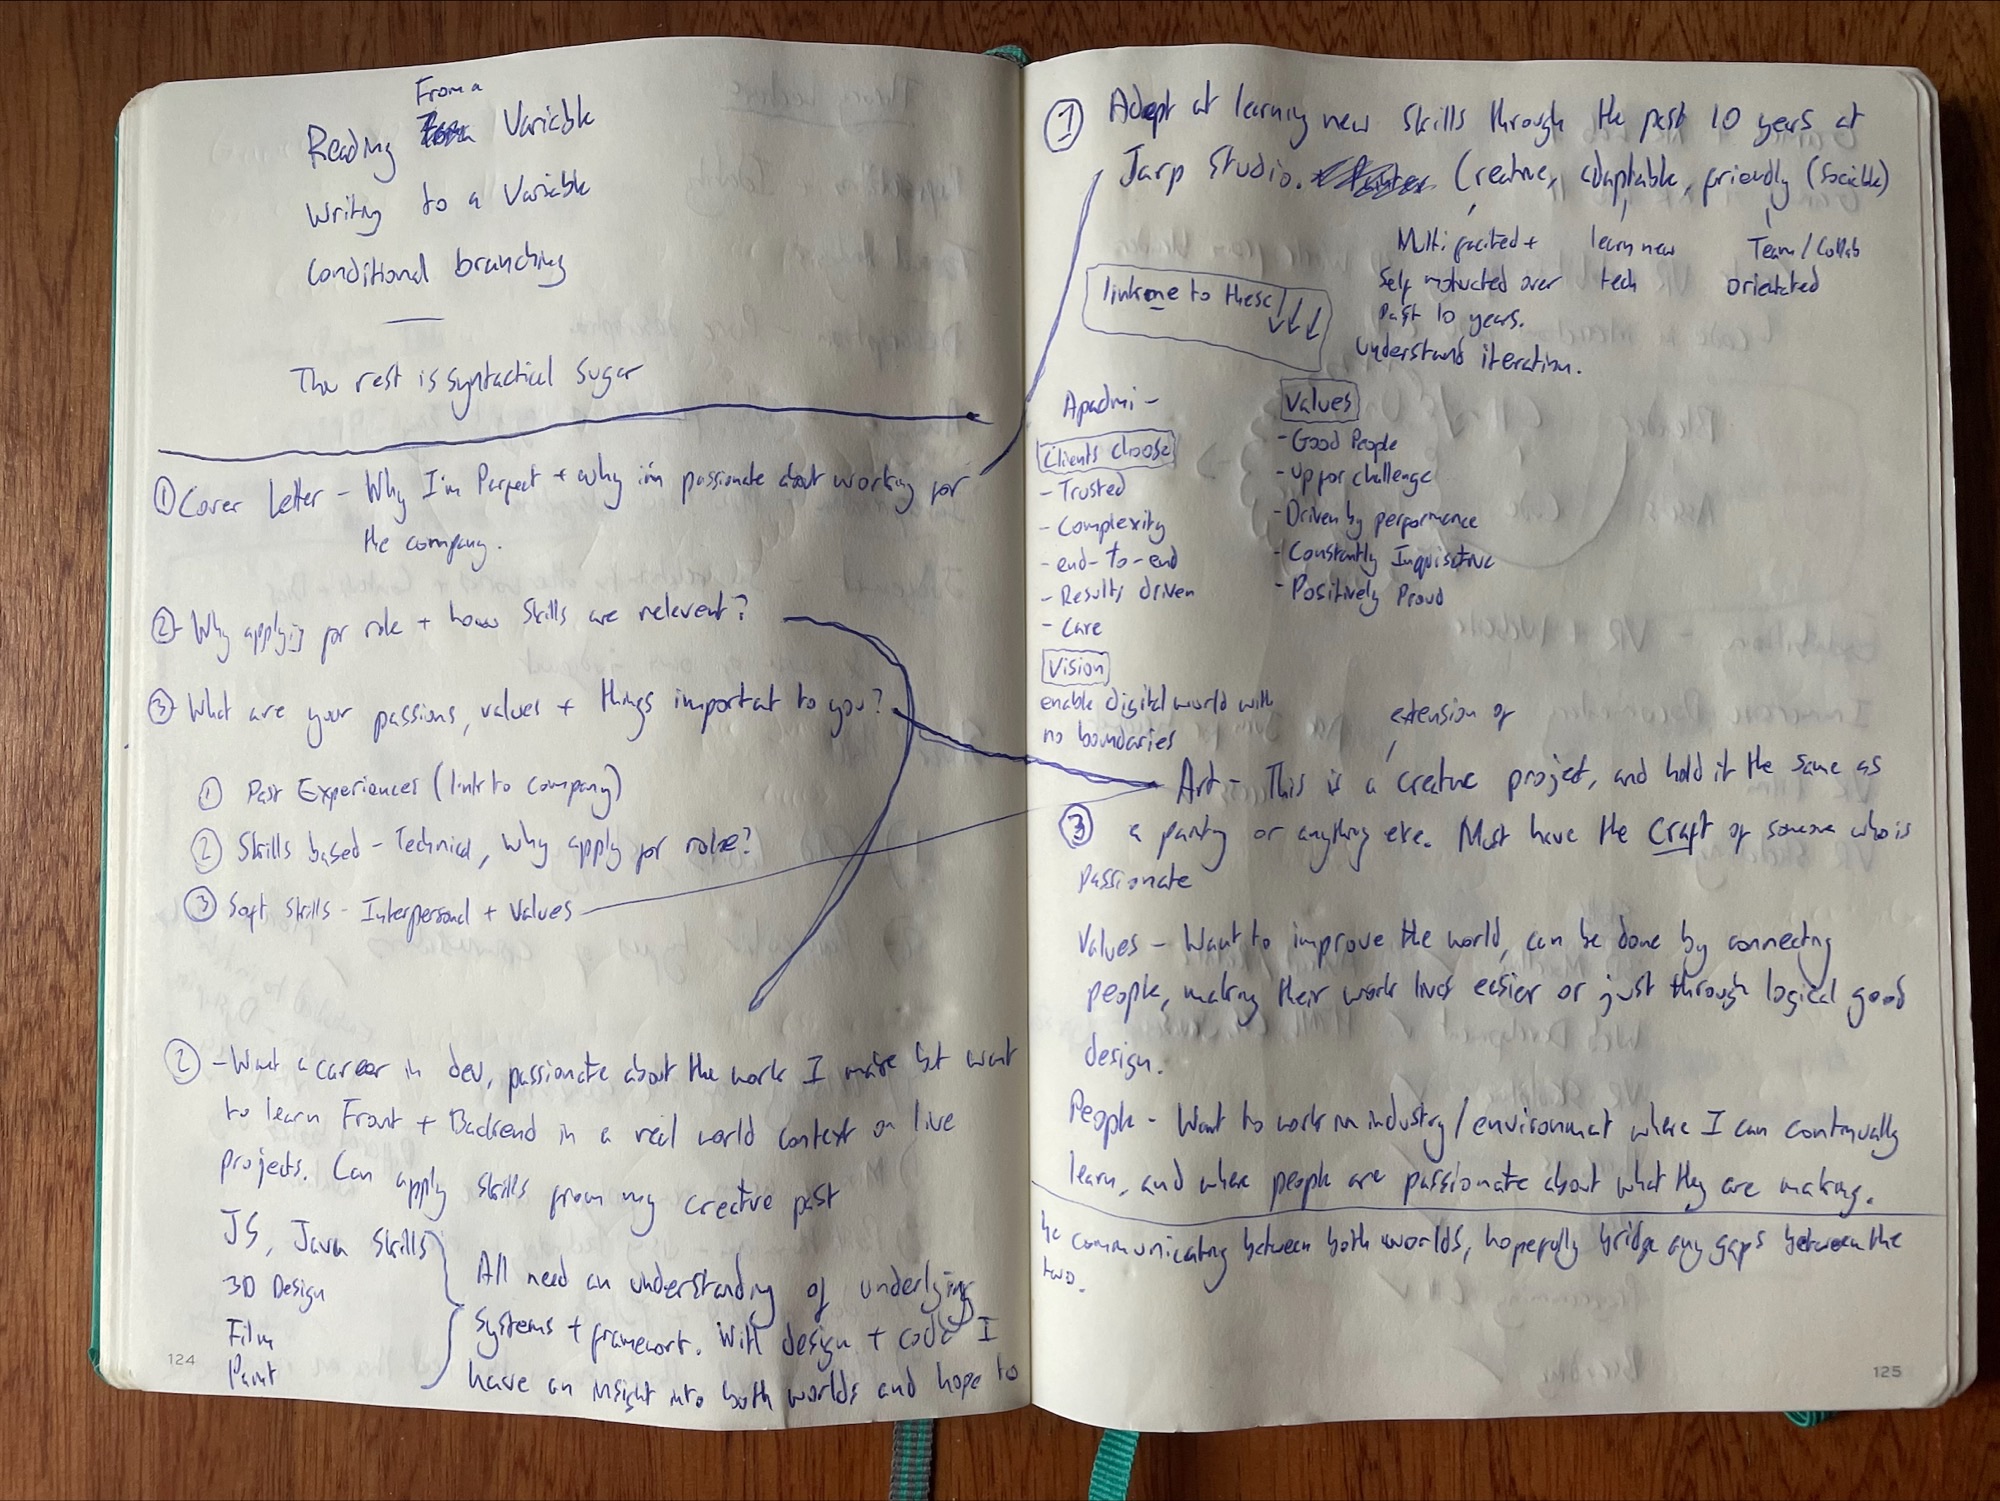 From a
Reading Variable
Writing to a Variable
Conditional branching
The rest is syntactical sugar
① Cover Letter - Why I'm Perfect + why i'm passionate about working for
the company.
② - Why applying for role + how skills are relevent?
③ - What are your passions, values + things important to you?
① Past Experiences (link to company)
② Skills based - Technical, why apply for role?
③ Soft skills - Interpersonal + Values
② - Want a career in dev, passionate about the work I make but want
to learn Front + Backend in a real world context on live
projects. Can apply skills from my creative past
JS, Java skills
3D Design
Film
Paint
All need an understanding of underlying
systems + framework. With design + code I
have an insight into both worlds and hope to
124
① Adept at learning new skills through the past 10 years at
Jarp Studio. Creative, adaptable, friendly (sociable)
Multi facited +
Self motivated over
Past 10 years.
understand iteration.
learn new
tech
Team/Collab
orientated
link me to these
Apadmi -
Clients choose
- Trusted
- Complexity
- end-to-end
- Results driven
- Care
Vision
enable digital world with
no boundaries
Values
- Good People
- Up for challenge
- Driven by performance
- Constantly Inquisitive
- Positively Proud
extension of
Art - This is a creative project, and hold it the same as
③ a painting or anything else. Must have the craft of someone who is
passionate
Values - Want to improve the world, can be done by connecting
people, making their work lives easier or just through logical good
design.
People - Want to work in industry/environment where I can continually
learn, and where people are passionate about what they are making.
be communicating between both worlds, hopefully bridge any gaps between the
two.
125